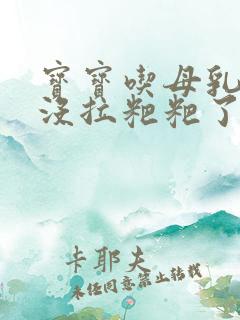 寳寳喫母乳
沒拉粑粑了
卡耶夫
未经同意禁止转载